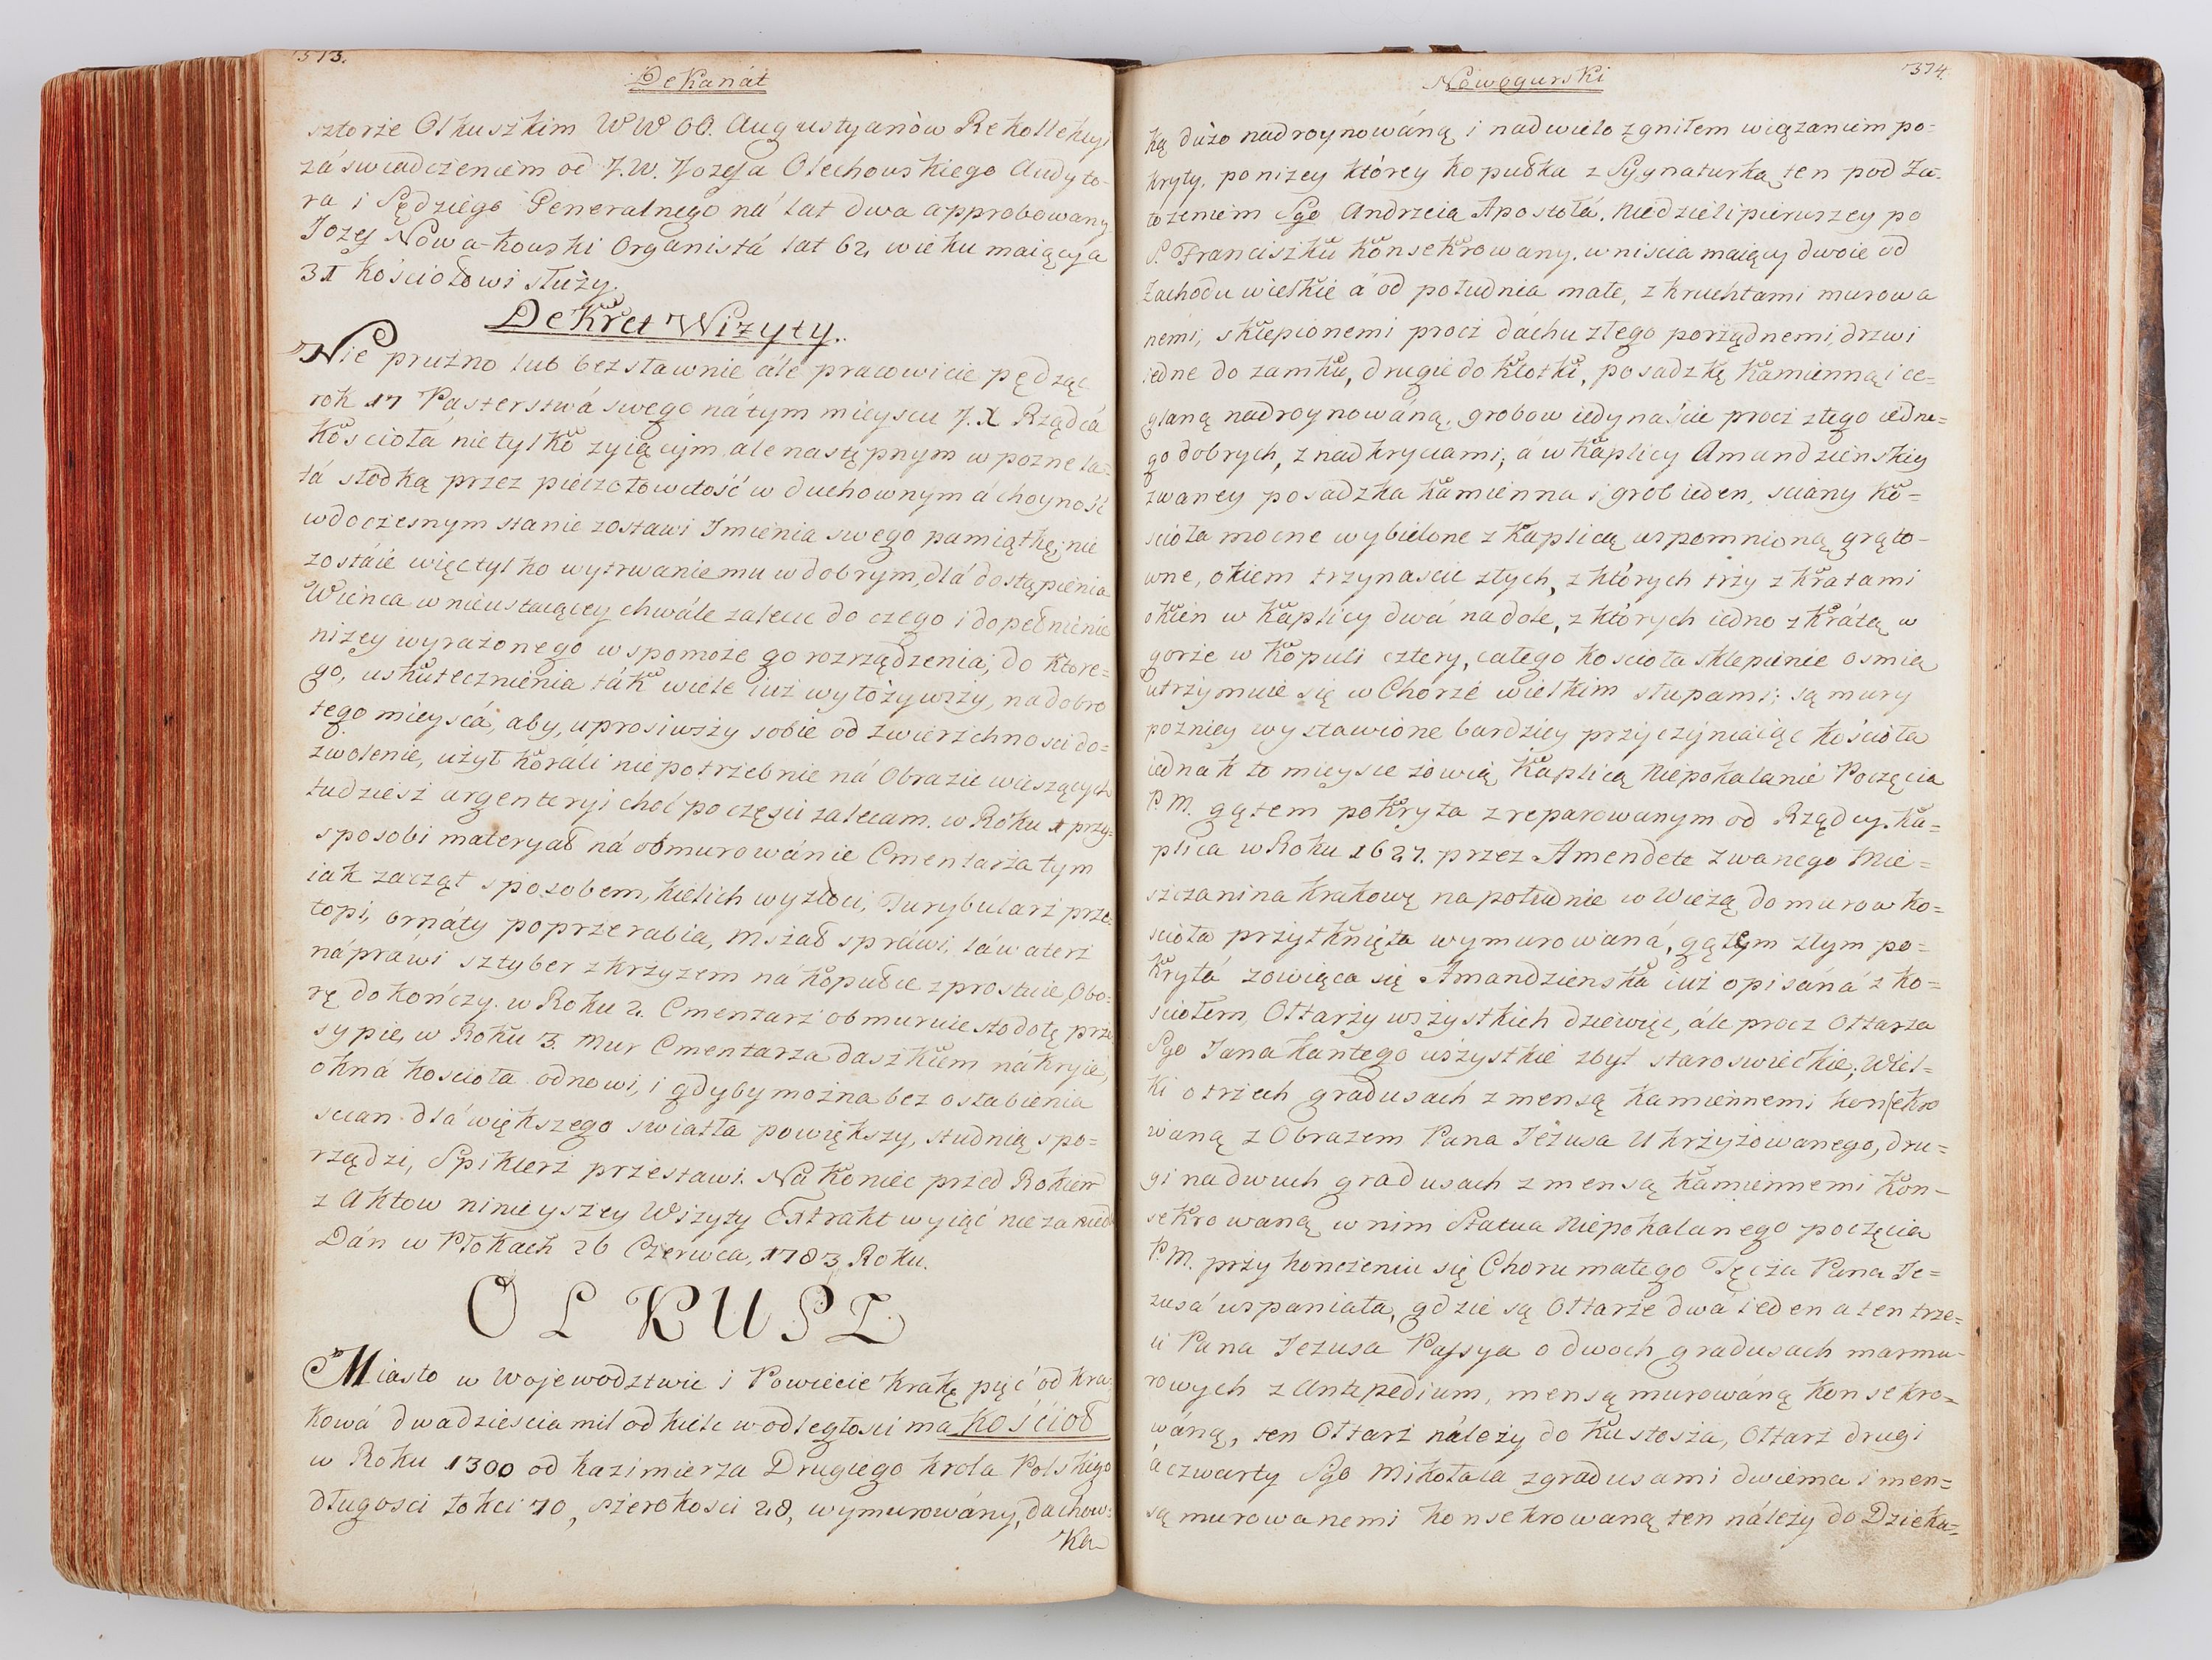 373.
Dekanát
sztorze Olkuszkim WWOO. Augustyanów Rekollekcyi
zá świadczeniem od J.W. Jozefa Olechowskiego Audyto-
ra i Sędziego Generalnego ná lat dwa approbowany
Jozef Nowakowski Organistá lat 62 wieku maiący a
31 kościołowi służy.
Dekret Wizyty.
Nie prużno lub bezsławnie ále pracowicie pędząc
rok 17 Pasterstwá swego ná tym mieyscu J.X Rządcá
Kościołá nie tylko zyiącym ale następnym w pozne la=
tá słodką przez pieczołowitość w duchownym á choyność
w doczesnym stanie zostawi Jmienia swego pamiątkę; nie
zostáie więc tylko wytrwanie mu w dobrym, dlá dostąpienia
Wieńca w nieustaiącey chwále zalecić do czego i dopełnienie
niżey wyrażonego wspomoże go rozrządzenia; do które=
go, uskutecznienia ták wiele iuż wyłożywszy, na dobro
tego mieyscá, aby, uprosiwszy sobie od zwierzchności do=
zwolenie, użył koráli niepotrzebnie ná Obrazie wiszących
tudziesz argenteryi choć po części zalecam. w Roku 1 przy=
sposobi materyał ná obmurowánie Cmentarza tym
iak zaczął sposobem, kielich wyzłoci, Turybularz prze=
topi, ornáty poprzerabia, Mszał spráwi, láwaterz
náprawi sztyber z krzyzem ná kopułce zprostuie, Obo=
rę dokończy. w Roku 2. Cmentarz obmuruie stodołę prze
sypie, w Roku 3. Mur Cmentarza daszkiem nákryie,
okná kościoła odnowi, i gdyby można bez osłabienia
scian dlá większego swiatła powiększy, studnią spo=
rządzi, Spiklerz przestawi. Nakoniec przed Rokiem
z Aktow ninieyszey Wizyty Extrakt wyiąć nie
Dán w Płokach 26 Czerwca, 1783 Roku.
OLKUSZ
Miasto w Wojewodztwie i Powiecie Krakẹ pięć od Kra=
kowá dwadziescia mil od Kielc w odległości ma kościoł
w Roku 1300 od Kazimierza Drugiego krola Polskiego
długosci łokci 70, szerokosci 28, wymurowány, dachow=
ką
Nowogurski
374.
ką dużo nadroynowáną i nadwielo zgniłem wiązaniem po=
kryty, poniżey którey kopułka z Sygnaturką ten pod Za=
łożeniem Sgo Andrzeia Apostołá. Niedzieli pierwszey po
S. Franciszku konsekrowany. wniscia maiący dwoie od
Zachodu wielkie á od południa małe, z kruchtami murowa
nemi, sklepionemi procz dáchu złego porządnemi, drzwi
iedne do zamku, drugie do kłotki, posadzkę kamienną i ce=
glaną nadroynowáną. grobow iedynaście procz złego iedne=
go dobrych, z nadkryciami; á w kaplicy Amandzienskiy
zwaney posadzka kamienna i grob ieden, sciány ko=
scioła mocne wybielone z kaplicą wspomnioną grąto-
wne, okiem trzynascie złych, z których trży z kratami
okien w kaplicy dwá na dole, z których iedno z krátą w
gorze w kopuli cztery, całego koscioła sklepienie osmią
utrzymuie się w Chorze wielkim słupami; są mury
pozniey wystawione bardziey przyczyniaiąc kościoła
iednak to mieysce zowią Káplicą Niepokalanie Poczęcia
P.M. gątem pokryta zreparowanym od Rządcy. Ka=
plica w Roku 1627. przez Amendete zwanego Mie=
szczanina krakowẹ na południe w Wieżą do murow ko=
scioła przytknięta wymurowaná, gątem złym po=
krytá zowiąca się Amandzienska iuż opisáná z ko=
sciołem, Ołtarży wszystkich dziewięć, ále procz Ołtarza
Sgo Jana kantego wszystkie zbyt staroswieckie; Wiel=
ki o trzech gradusach z mensą kamiennemi konsekro
waną z Obrazem Pana Jezusa Ukrzyżowanego, dru=
gi na dwuch gradusach z mensą kamiennemi kon-
sekrowaną w nim Statua Niepokalanego poczęcia
P.M. przy kończeniu się Choru małego Tęcża Pana Je=
zusá wspaniała, gdzie są Ołtarze dwá ieden a ten trze=
ci Pana Jezusa Passya o dwoch gradusach marmu-
rowych z Antipedium, mensą murowáną konsekro=
wáną, ten Ołtarz náleży do kustosza, Ołtarz drugi
a czwarty Sgo Mikołaia z gradusami dwiema i men=
są murowanemi konsekrowaną ten náleży do Dzieka=